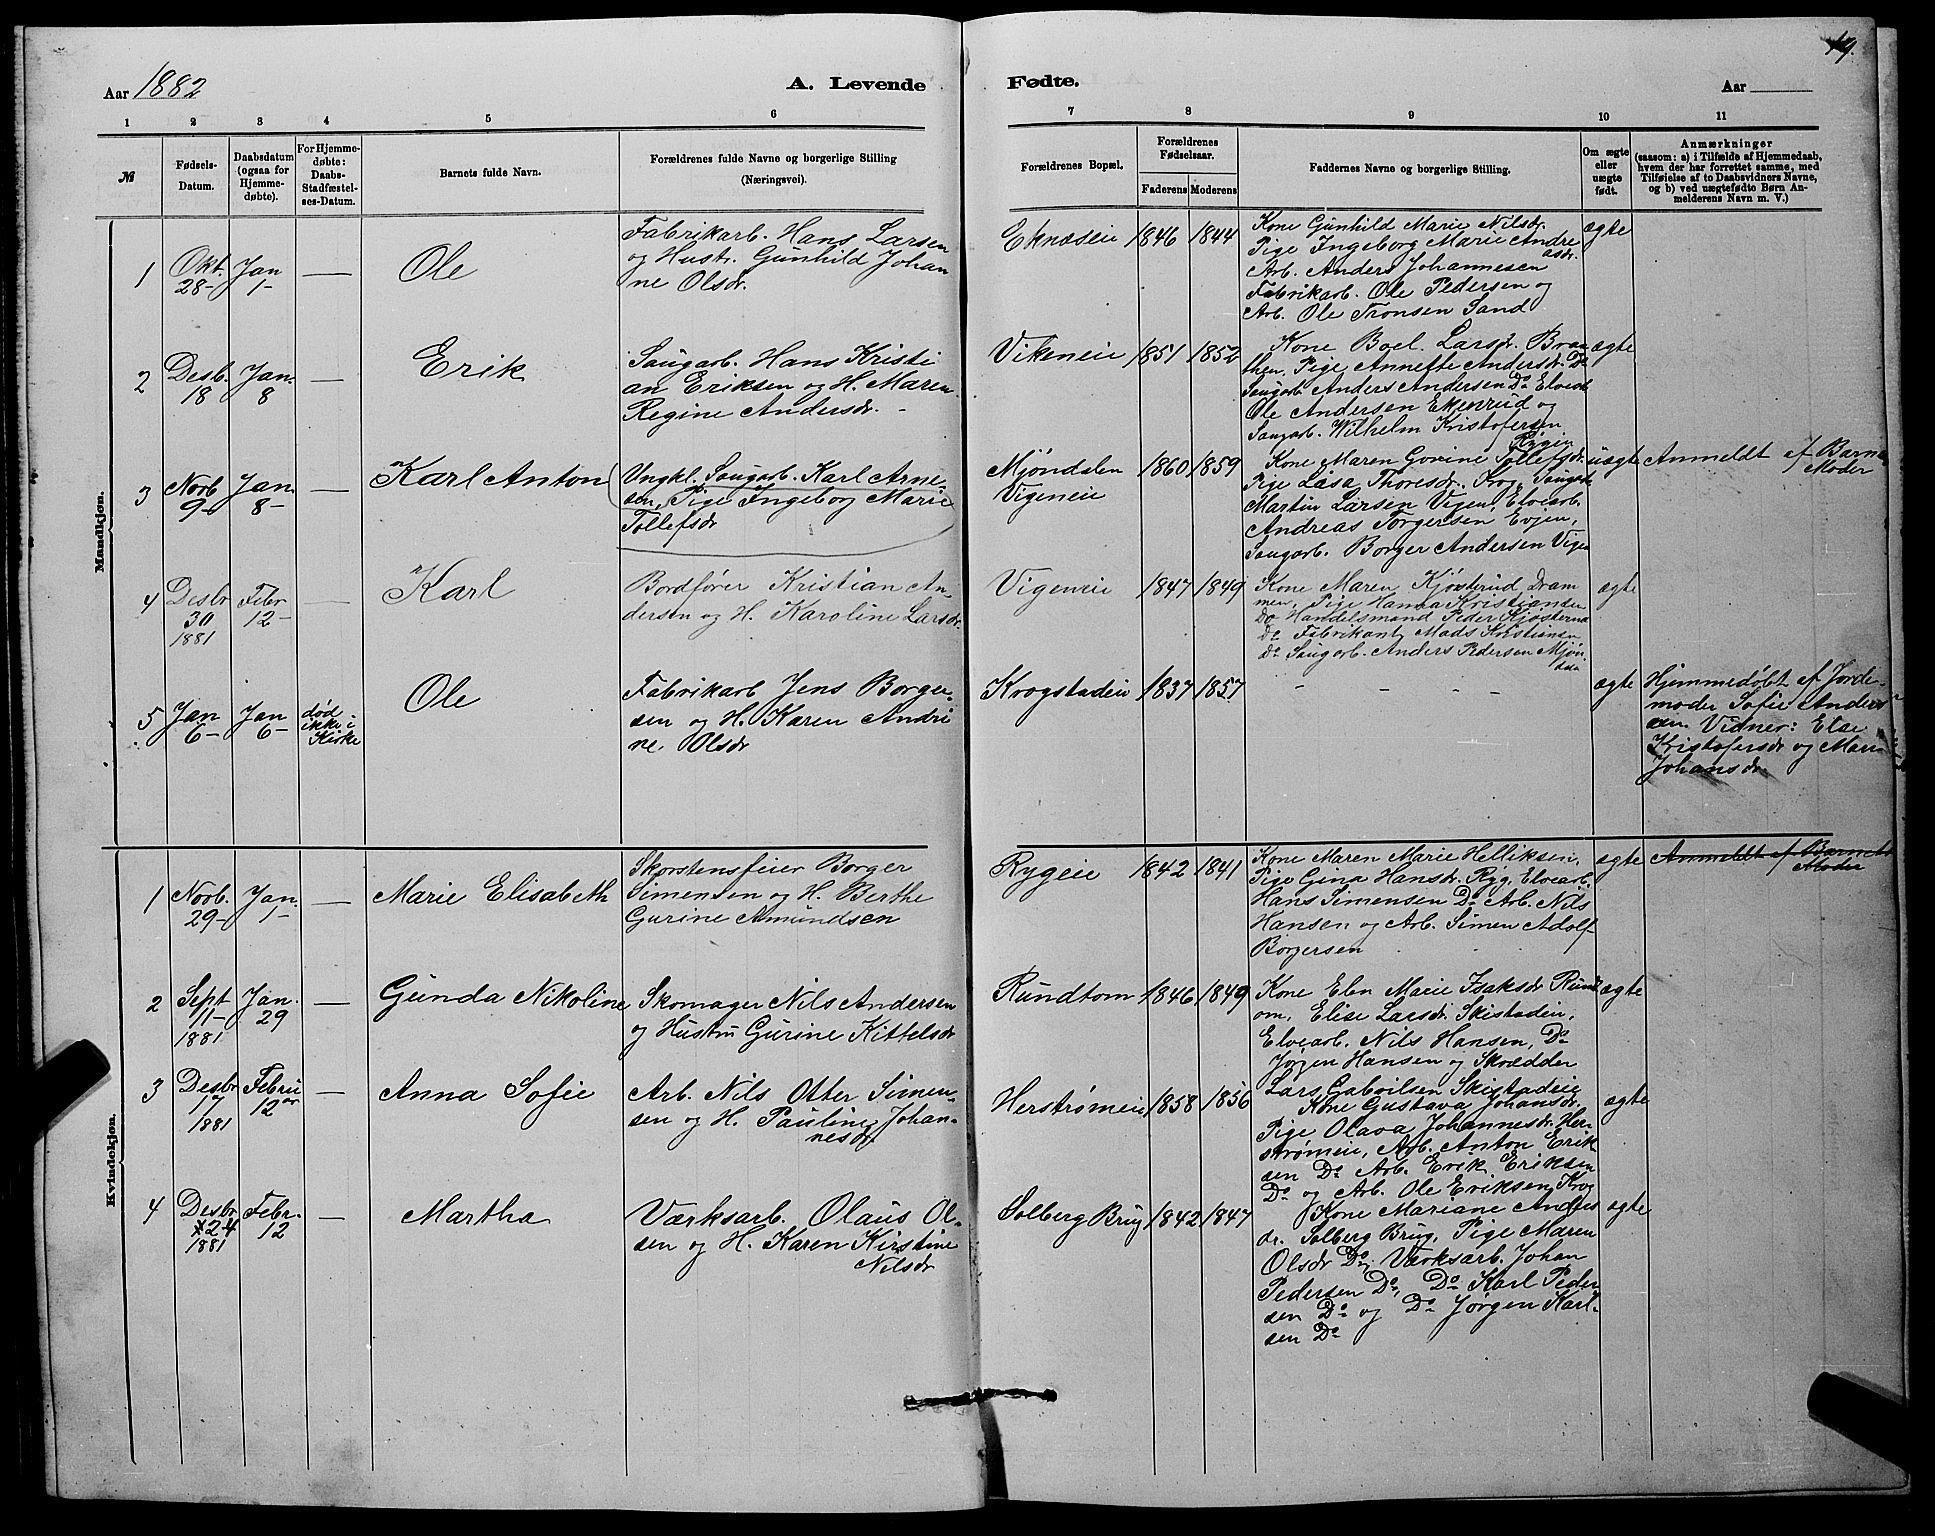 Aar 1882
A. Levende
Fødte.
Aar
19.
1 2 3 4 5 6 7 8 9 10 11
№
Fødsels-
Datum.
Daabsdatum
(ogsaa for
Hjemme-
døbte).
For Hjemme-
døbte:
Daabs-
Stadfæstel-
ses-Datum.
Barnets fulde Navn.
Forældrenes fulde Navne og borgerlige Stilling
(Næringsvei).
Forældrenes Bopæl.
Forældrenes
Fødselsaar.
Faderens
Moderens
Faddernes Navne og borgerlige Stilling.
Om ægte
eller
uægte
født.
Anmærkninger
(saasom: a) i Tilfælde af Hjemmedaab,
hvem der har forrettet samme, med
Tilføielse af to Daabsvidners Navne,
og b) ved uægtefødte Børn An-
melderens Navn m. V.)
Mandkjøn.
1
Okt.
28-
Jan
1-
—
Ole
Fabrikarb. Hans Larsen
og Hustr. Gunhild Johan
ne Olsdr.
Eknæseie
1846
1844
Kone Gunhild Marie Nilsdr.
Pige Ingeborg Marie Andre
asdr.
Arb. Anders Johannesen
Fabrikarb. Ole Pedersen og
Arb. Ole Tronsen Sand
ægte
2
Desb.
18
Jan.
8
—
Erik
Saugarb. Hans Kristi
an Eriksen og H. Maren
Regine Andersdr. -
Vikeneie
1851
1852
Kone Boel Larsdr. Braa
then, Pige Annette Andersdr. Do
Saugarb. Anders Andersen Do Elvearb
Ole Andersen Ekenrud og
Saugarb. Wilhelm Kristofersen
ægte
3
Novb
9-
Jan.
8-
—
Karl Anton
Ungkl. Saugarb. Karl Arne-
sen, Pige Ingeborg Marie
Tollefsdr
Mjøndalen
Vigeneie
1860
1859
Kone Maren Govine Tollefsdr.
Pige Lasa Thoresdr. Krog, Saugarb
Martin Larsen Vigen, Elvearb.
Andreas Torgersen Evjen,
Saugarb. Borger Andersen Vigen
uægte
Anmeldt af Barnets
Moder
4
Desbr
30
1881
Febr
12-
—
Karl
Bordfører Kristian An-
dersen og H. Karoline Larsdr.
Vigeneie
1847
1849
Kone Maren Kjøsterud, Dram
men, Pige Hanna Kristiansen
Do Handelsmand Peder Kjøsterud
Do Fabrikant Mads Kristiansen
Do Saugarb. Anders Pedersen Mjøn
dalen
ægte
5
Jan
6-
Jan
6-
død
ikke i
Kirke
Ole
Fabrikarb Jens Borger-
sen og H. Karen Andri
ne Olsdr
Krogstadeie
1837
1857
- - - -
ægte
Hjemmedøbt af Jorde-
moder Sofie Anders
sen. Vidner: Else
Kristofersdr og Maren
Johansdr.
Kvindekjøn.
1
Novb.
29-
Jan.
1-
—
Marie Elisabeth
Skorstensfeier Borger
Simensen og H. Berthe
Gurine Amundsen
Rygeie
1842
1841
Kone Maren Marie Helliksen,
Pige Gina Hansdr. Ryg, Elvearb.
Hans Simensen Do Arb. Nils
Hansen og Arb. Simen Adolf
Borgersen
ægte
Anmeldt af Barnets
Moder
2
Sept
11-
1881
Jan.
29
—
Gunda Nikoline
Skomager Nils Andersen
og Hustru Gurine Kittelsdr
Rundtom
1846
1849
Kone Elen Marie Isaksdr Rundt
om, Elise Larsdr. Skistadeie,
Elvearb. Nils Hansen, Do
Jørgen Hansen og Skrædder
Lars Gabrilsen Skistadeie
ægte
3
Desbr
17
1881
Febru
12ar
—
Anna Sofie
Arb. Nils Otter Simen-
sen og H. Pauline Johan-
nesdr
Herstrømeie
1858
1856
Kone Gustava Johansdr.
Pige Olava Johannesdr. Her-
strømeie, Arb. Anton Erik
sen Do Arb. Erik Eriksen
Do og Arb. Ole Eriksen Krog
ægte
4
Desbr
24
1881
Febr.
12
—
Martha
Værksarb. Olaus Ol-
sen og H. Karen Kirstine
Nilsdr
Solberg Brug
1842
1847
Kone Mariane Anders
dr. Solberg Brug, Pige Maren
Olsdr Do, Værksarb. Johan
Pedersen Do, Do Karl Peder
sen Do og Do Jørgen Karl-
sen Do
ægte